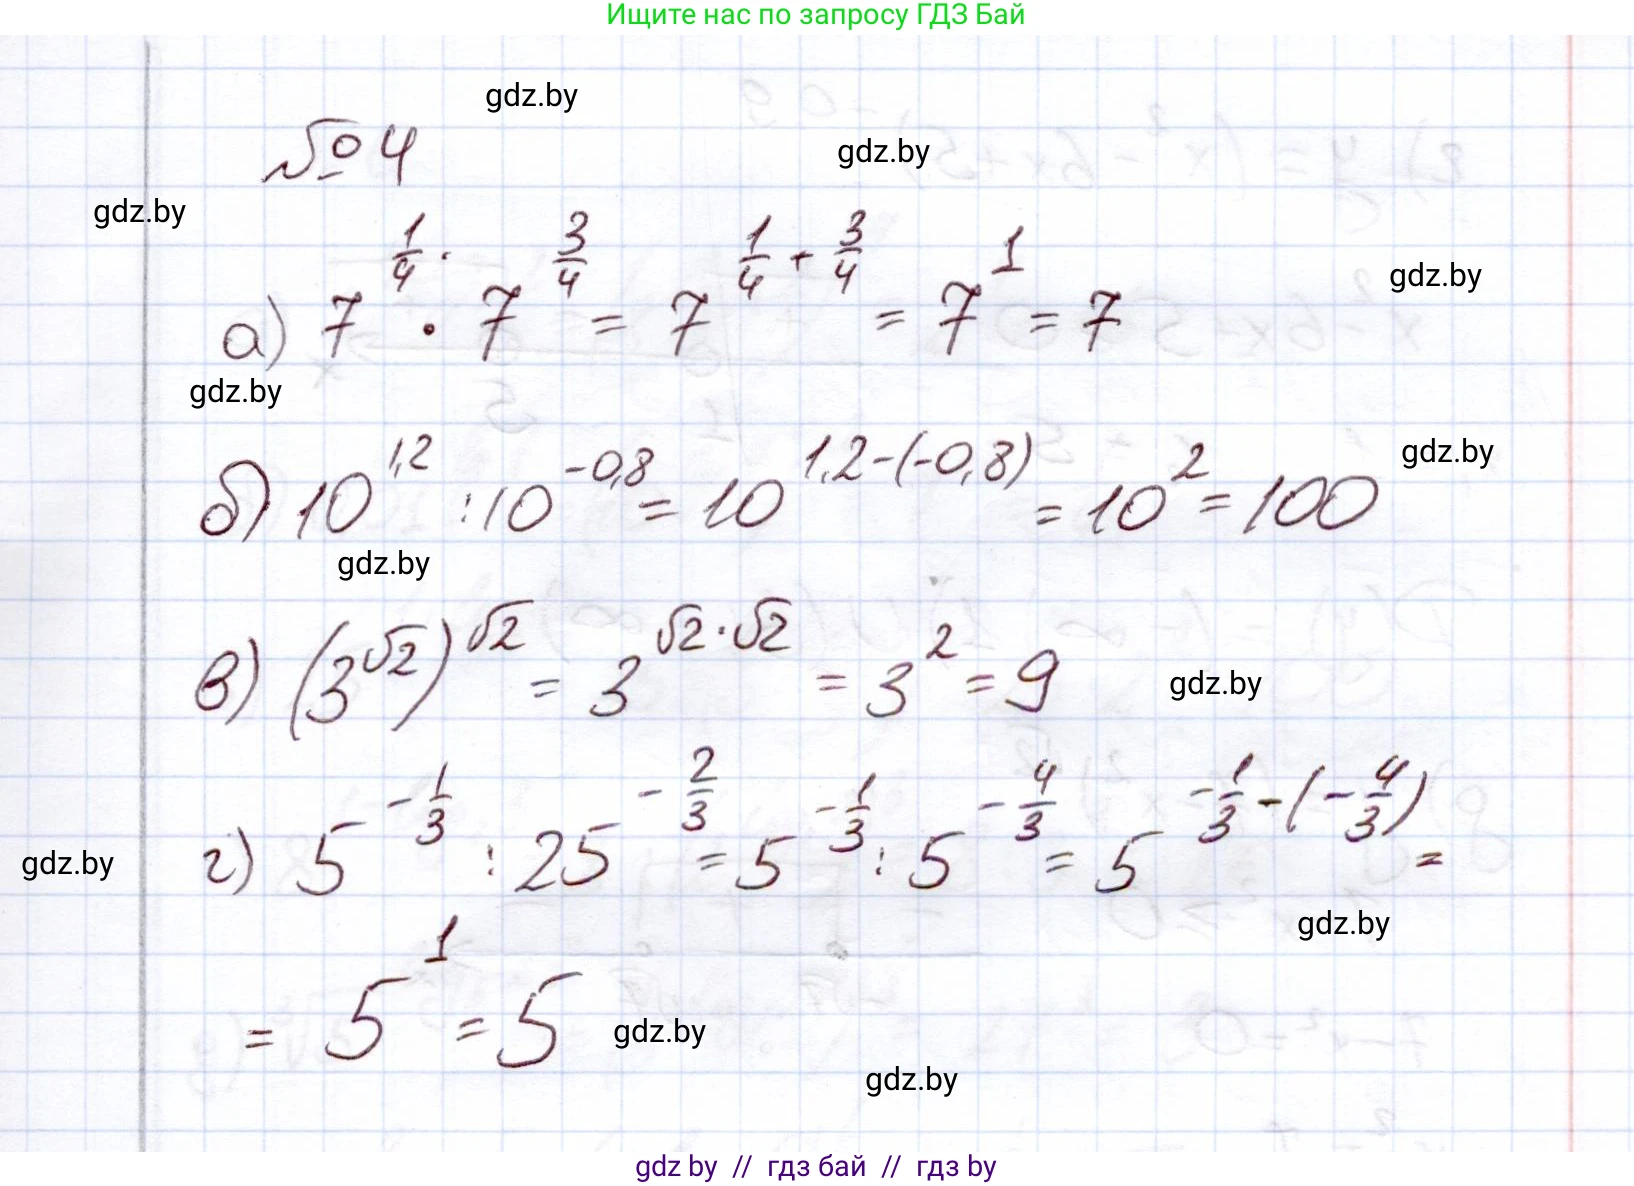 Ищите нас по запросу ГДЗ Бай
gdz.by
№ 4
gdz.by
gdz.by
а) 7^{1/4} · 7^{3/4} = 7^{1/4 + 3/4} = 7^1 = 7
gdz.by
gdz.by
gdz.by
б) 10^{1,2} : 10^{-0,8} = 10^{1,2-(-0,8)} = 10^2 = 100
gdz.by
в) (3^{√2})^{√2} = 3^{√2·√2} = 3^2 = 9
gdz.by
г) 5^{-1/3} : 25^{-2/3} = 5^{-1/3} : 5^{-4/3} = 5^{-1/3-(-4/3)} =
gdz.by
gdz.by
= 5^1 = 5
gdz.by
gdz.by
gdz by // гдз бай // гдз by